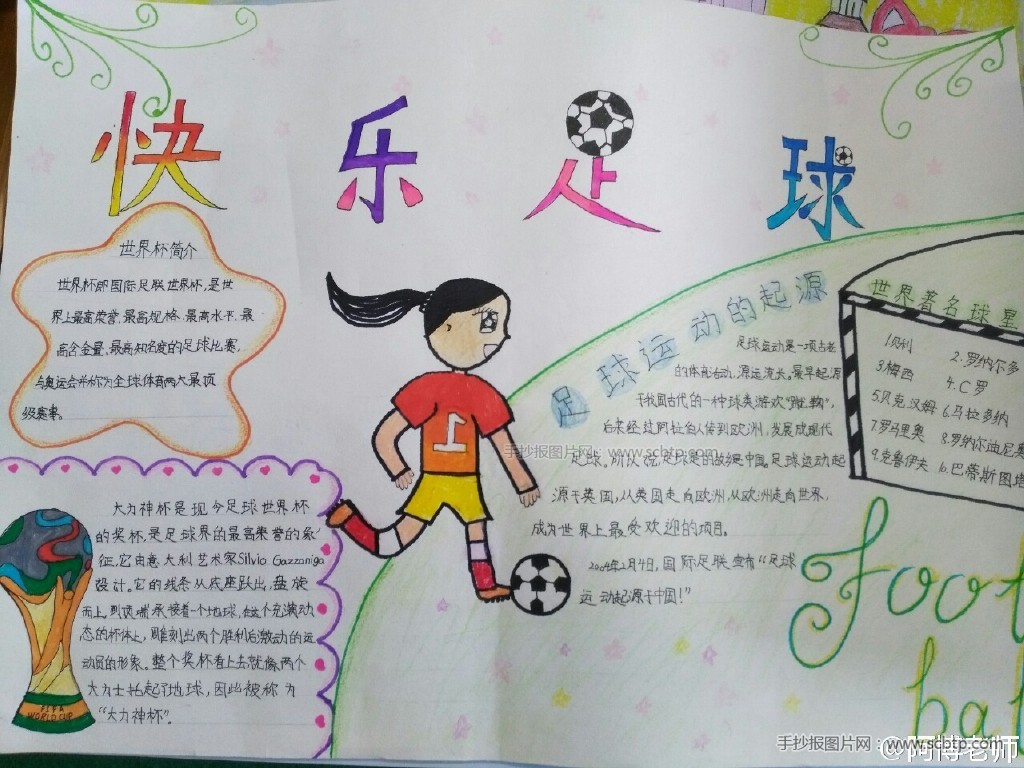 快乐足球
世界杯简介
世界杯即国际足联世界杯,是世
界上最高荣誉、最高规格、最高水平、最
高含金量、最高知名度的足球比赛,
与奥运会并称为全球体育两大最顶
级赛事。
大力神杯是现今足球世界杯
的奖杯,是足球界的最高荣誉的象
征,它由意大利艺术家Silvio Gazzaniga
设计。它的线条从底座跃出,盘旋
而上,到顶端承接着一个地球,在这个充满动
态的杯体上,雕刻出两个胜利后激动的运
动员的形象。整个奖杯看上去就像两个
大力士托起了地球,因此被称为
“大力神杯”。
FIFA
WORLD CUP
1
足球运动的起源
足球运动是一项古老
的体育活动,源远流长。最早起源
于我国古代的一种球类游戏“蹴鞠”,
后来经过阿拉伯人传到欧洲,发展成现代
足球。所以说,足球是的故乡是中国。足球运动起
源于英国,从英国走向欧洲,从欧洲走向世界,
成为世界上最受欢迎的项目。
2004年2月4日,国际足联宣布“足球
运动起源于中国!”
世界著名球星
1.贝利 2.罗纳尔多
3.梅西 4.C罗
5.贝克汉姆 6.马拉多纳
7.罗马里奥 8.罗纳尔迪尼奥
9.克鲁伊夫 10.巴蒂斯图塔
Foot
bal
手抄报图片网:www.scbtp.com
手抄报图片网:www.scbtp.com
@阿博老师